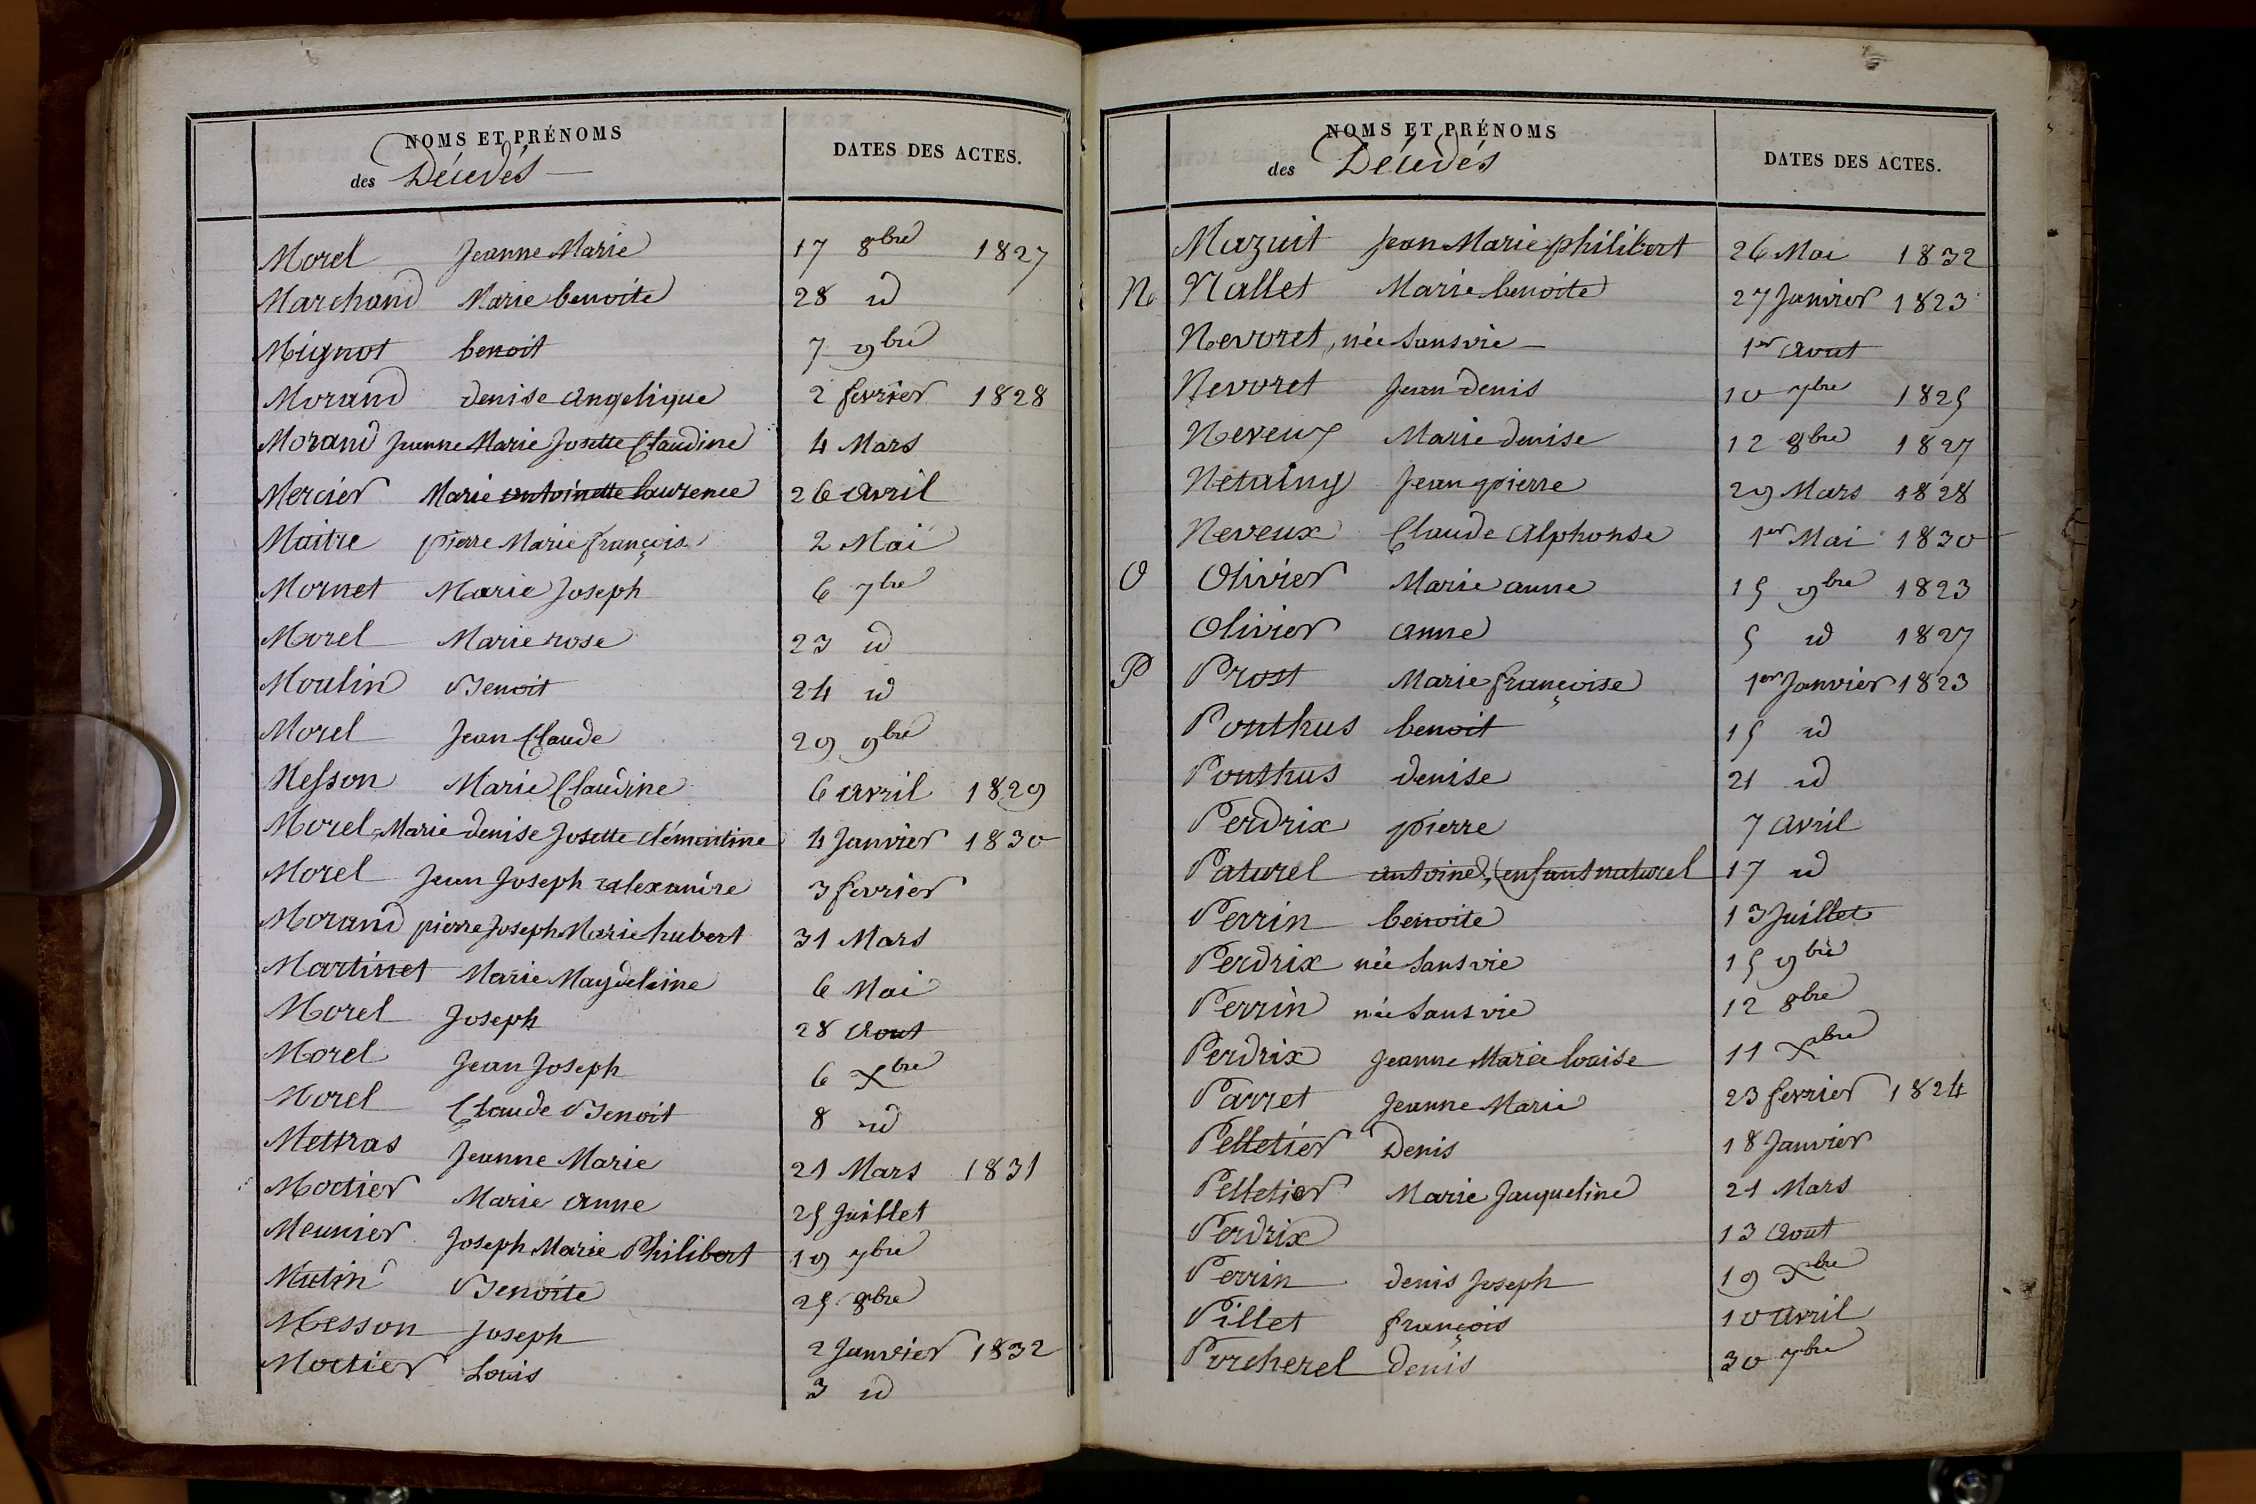 NOMS ET PRÉNOMS
des Décédés
DATES DES ACTES.
Morel Jeanne Marie 17 8bre 1827
Marchand Marie benoite 28 id
Mignot benoit 7 9bre
Morand denise angelique 2 fevrier 1828
Morand Jeanne Marie Josette Claudine 4 Mars
Mercier Marie antoinette laurence 26 avril
Maitre pierre Marie françois 2 Mai
Mornet Marie Joseph 6 7bre
Morel Marie rose 23 id
Moulin Benoit 24 id
Morel Jean Claude 29 9bre
Messon Marie Claudine 6 avril 1829
Morel, Marie denise Josette clémentine 4 Janvier 1830
Morel Jean Joseph alexandre 3 fevrier
Morand pierre Joseph Marie hubert 31 Mars
Martinet Marie Magdeleine 6 Mai
Morel Joseph 28 aout
Morel Jean Joseph 6 Xbre
Morel Claude Benoit 8 id
Mettras Jeanne Marie 21 Mars 1831
Moctier Marie anne 25 Juillet
Meunier Joseph Marie Philibert 19 7bre
Mutin Benoite 25 8bre
Messon Joseph 2 Janvier 1832
Moctier Louis 3 id
NOMS ET PRÉNOMS
des Décédés
DATES DES ACTES.
Mazuit Jean Marie philibert 26 Mai 1832
N Nallet Marie benoite 27 Janvier 1823
Nevoret, née sans vie 1er aout
Nevoret Jean denis 10 7bre 1825
Neveux Marie denise 12 8bre 1827
Jean pierre 29 Mars 1828
Neveux Claude alphonse 1er Mai 1830
O Olivier Marie anne 15 9bre 1823
Olivier anne 5 id 1827
P Prost Marie françoise 1er Janvier 1823
Ponthus benoit 15 id
Ponthus denise 21 id
Perdrix pierre 7 avril
Paturel antoine, enfant naturel 17 id
Perrin benoite 13 Juillet
Perdrix née sans vie 15 9bre
Perrin née sans vie 12 8bre
Perdrix Jeanne Marie louise 11 Xbre
Parret Jeanne Marie 23 fevrier 1824
Pelletier Denis 18 Janvier
Pelletier Marie Jaqueline 21 Mars
Perdrix 13 aout
Perrin denis Joseph 19 Xbre
Pillet françois 10 avril
Porcherel denis 30 7bre